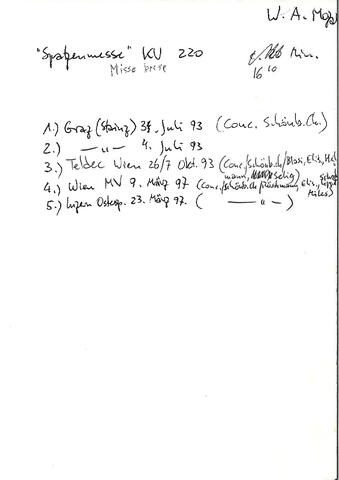 W. A. Moza
"Spatzenmesse" KV 220 Min.
Missa brevis 16'10
1.) Graz (Stainz) 31. Juli 93 (Conc. Schönb.Ch.)
2.) — " — 4. Juli 93
3.) Teldec Wien 26/7 Okt. 93 (Conc./Schönb.ch/Blasi, Elis, Hol
mann,
4.) Wien MV 9. März 97 (Conc./Schönb.ch/ Elis.,
Miles)
5.) Luzern Ostersp. 23. März 97. ( — " — )